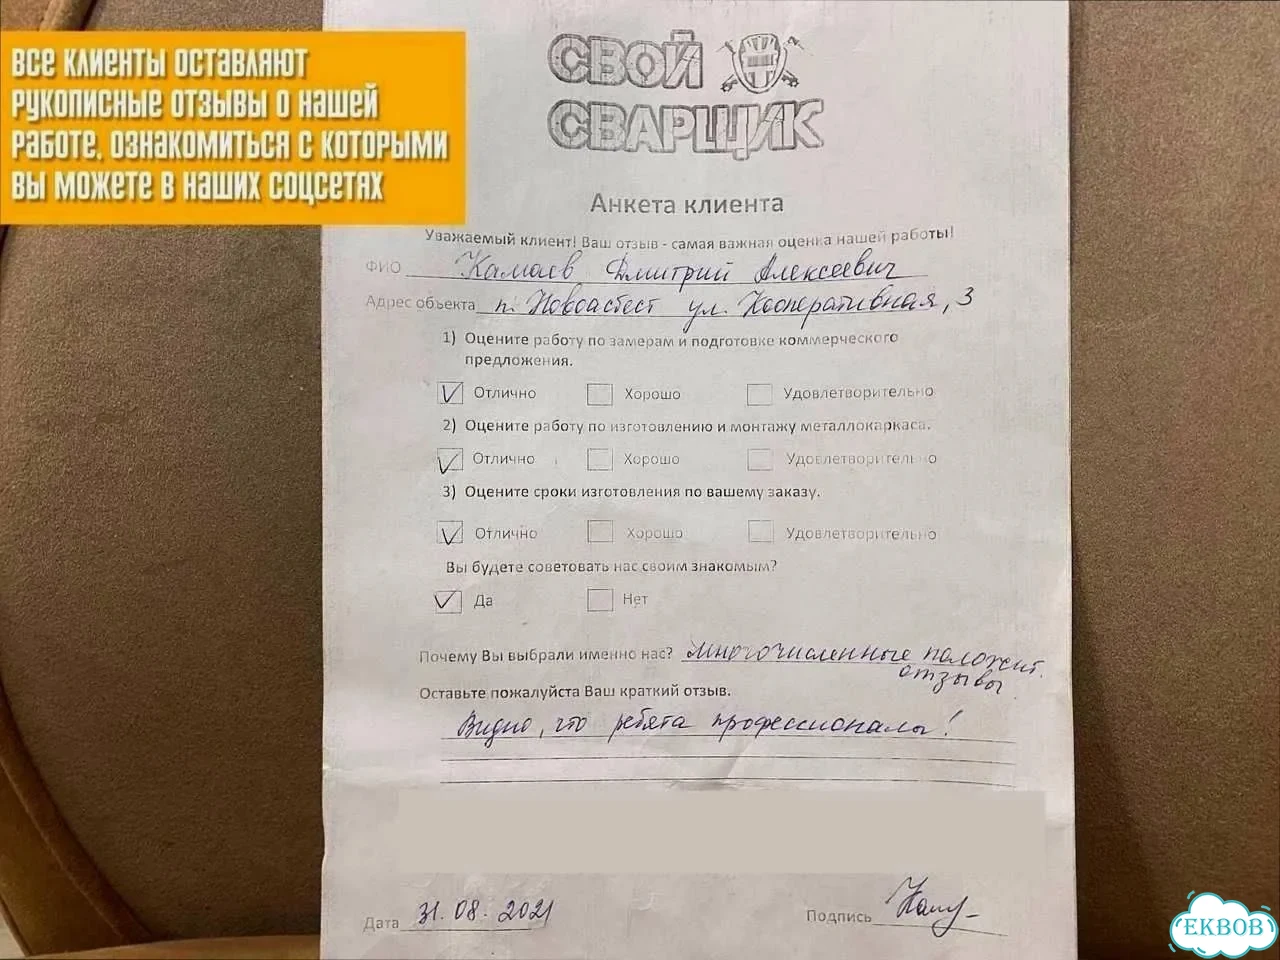 ВСЕ КЛИЕНТЫ ОСТАВЛЯЮТ
РУКОПИСНЫЕ ОТЗЫВЫ О НАШЕЙ
РАБОТЕ, ОЗНАКОМИТЬСЯ С КОТОРЫМИ
ВЫ МОЖЕТЕ В НАШИХ СОЦСЕТЯХ
СВОЙ
СВАРЩИК
Анкета клиента
Уважаемый клиент! Ваш отзыв - самая важная оценка нашей работы!
ФИО Камаев Дмитрий Алексеевич
Адрес объекта п. Новоасбест ул. Кооперативная, 3
1) Оцените работу по замерам и подготовке коммерческого
предложения.
Отлично Хорошо Удовлетворительно
2) Оцените работу по изготовлению и монтажу металлокаркаса.
Отлично Хорошо Удовлетворительно
3) Оцените сроки изготовления по вашему заказу.
Отлично Хорошо Удовлетворительно
Вы будете советовать нас своим знакомым?
Да Нет
Почему Вы выбрали именно нас? многочисленные положит.
отзывы
Оставьте пожалуйста Ваш краткий отзыв.
Видно, что ребята профессионалы!
Дата 31.08.2021 Подпись
EKBOB